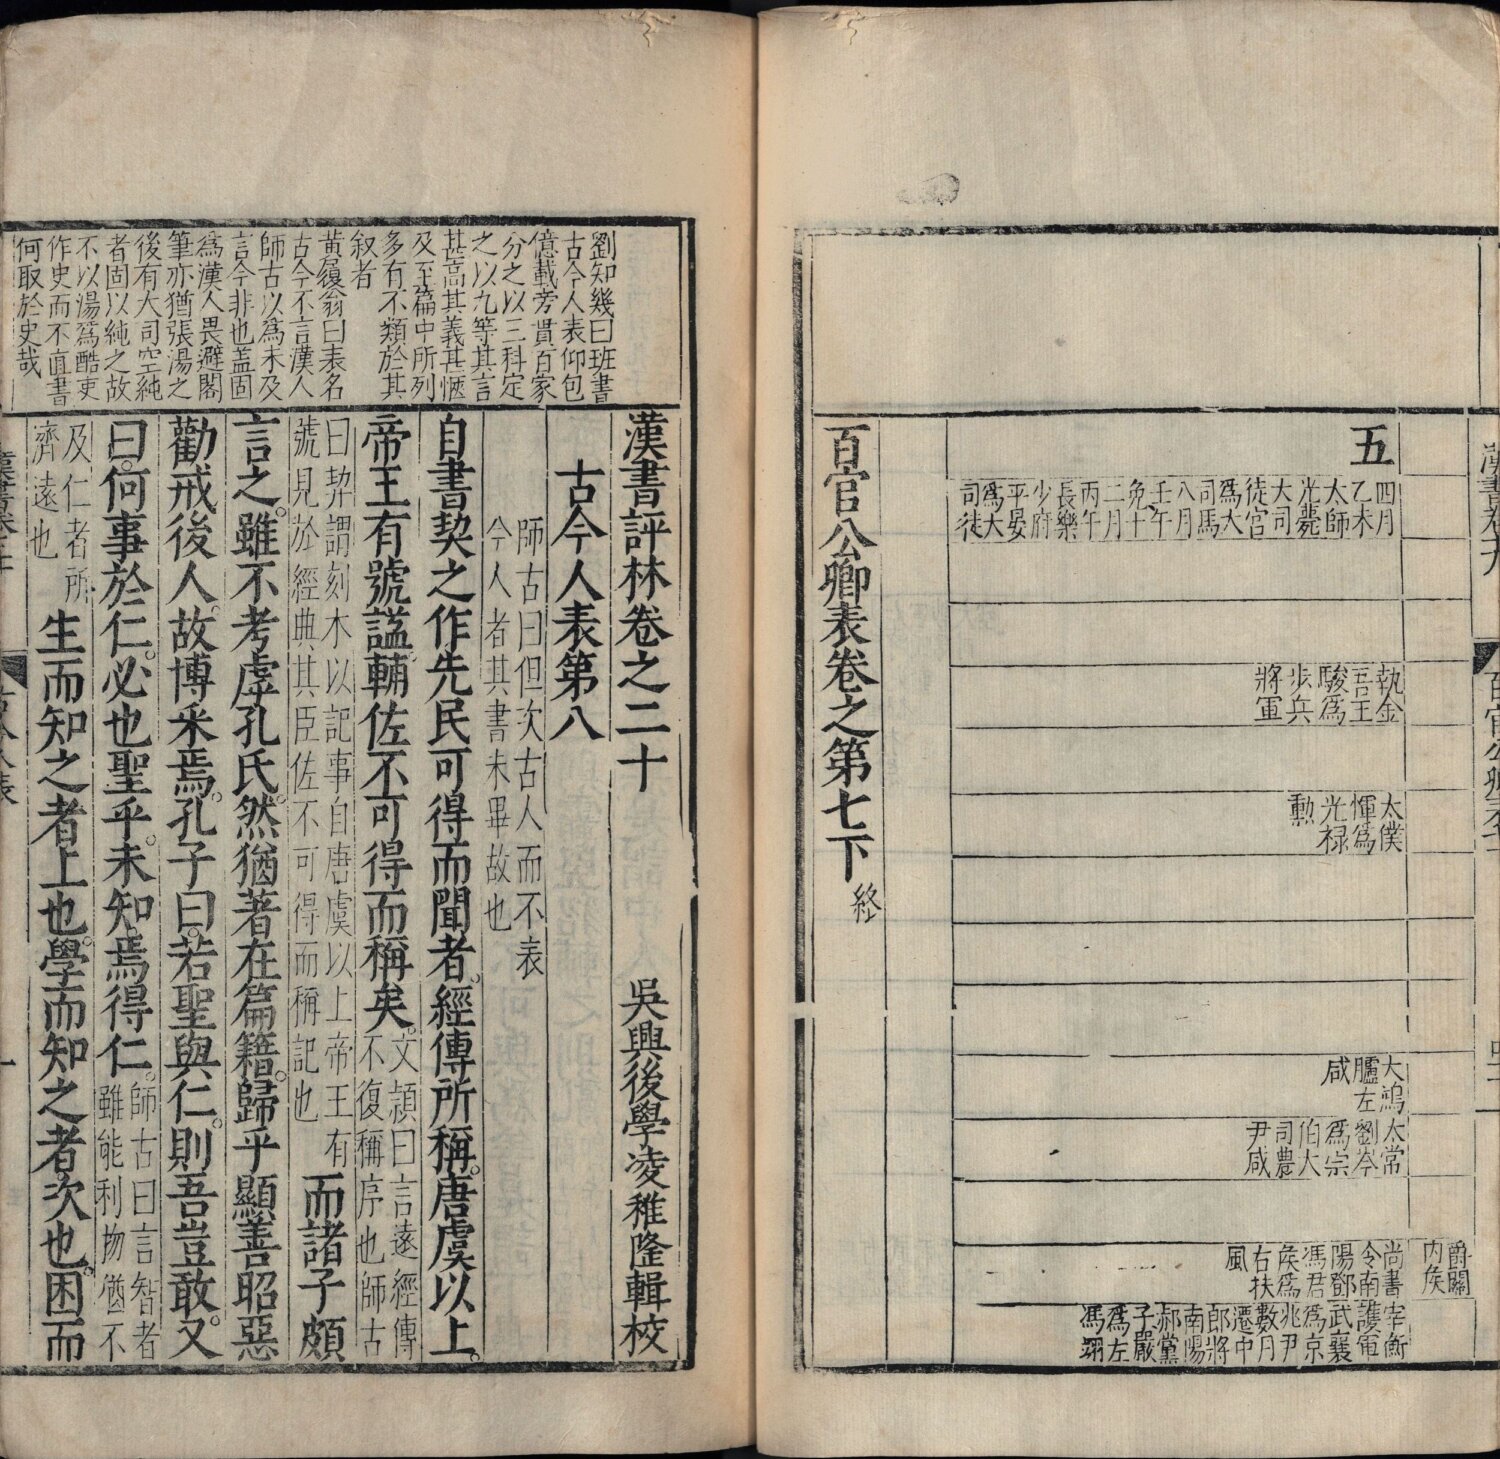 爵關
內侯
五
四月
乙未
太師
光薨
大司
徒宮
爲大
司馬
八月
壬午
免十
二月
丙午
長樂
少府
平晏
爲大
司徒
執金
吾王
駿爲
步兵
將軍
太僕
惲爲
光禄
勲
大鴻
臚左
咸
太常
劉岑
爲宗
伯大
司農
尹咸
尚書
令南
陽鄧
馮君
侯爲
右扶
風
宰衡
護軍
武襄
爲京
兆尹
數月
遷中
郎將
南陽
郝黨
子嚴
爲左
馮翊
百官公卿表卷之第七下 終
劉知幾曰班書
古今人表仰包
億載旁貫百家
分之以三科定
之以九等其言
甚高其義甚愜
及至篇中所列
多有不類於其
叙者
黃履翁曰表名
古今不言漢人
師古以爲未及
言今非也盖固
爲漢人畏避閣
筆亦猶張湯之
後有大司空純
者固以純之故
不以湯爲酷吏
作史而不直書
何取於史哉
漢書評林卷之二十 吳興後學凌稚隆輯校
古今人表第八
師古曰但次古人而不表
今人者其書未畢故也
自書契之作先民可得而聞者。經傳所稱。唐虞以上。
帝王有號謚。輔佐不可得而稱矣。文頴曰言遠經傳
不復稱序也師古
曰契謂刻木以記事自唐虞以上帝王有
號見於經典其臣佐不可得而稱記也 而諸子頗
言之。雖不考虖孔氏。然猶著在篇籍。歸乎顯善昭惡
勸戒後人。故博采焉。孔子曰。若聖與仁。則吾豈敢。又
曰。何事於仁。必也聖乎。未知。焉得仁。師古曰言智者
雖能利物猶不
及仁者所
濟遠也 生而知之者上也。學而知之者次也。困而